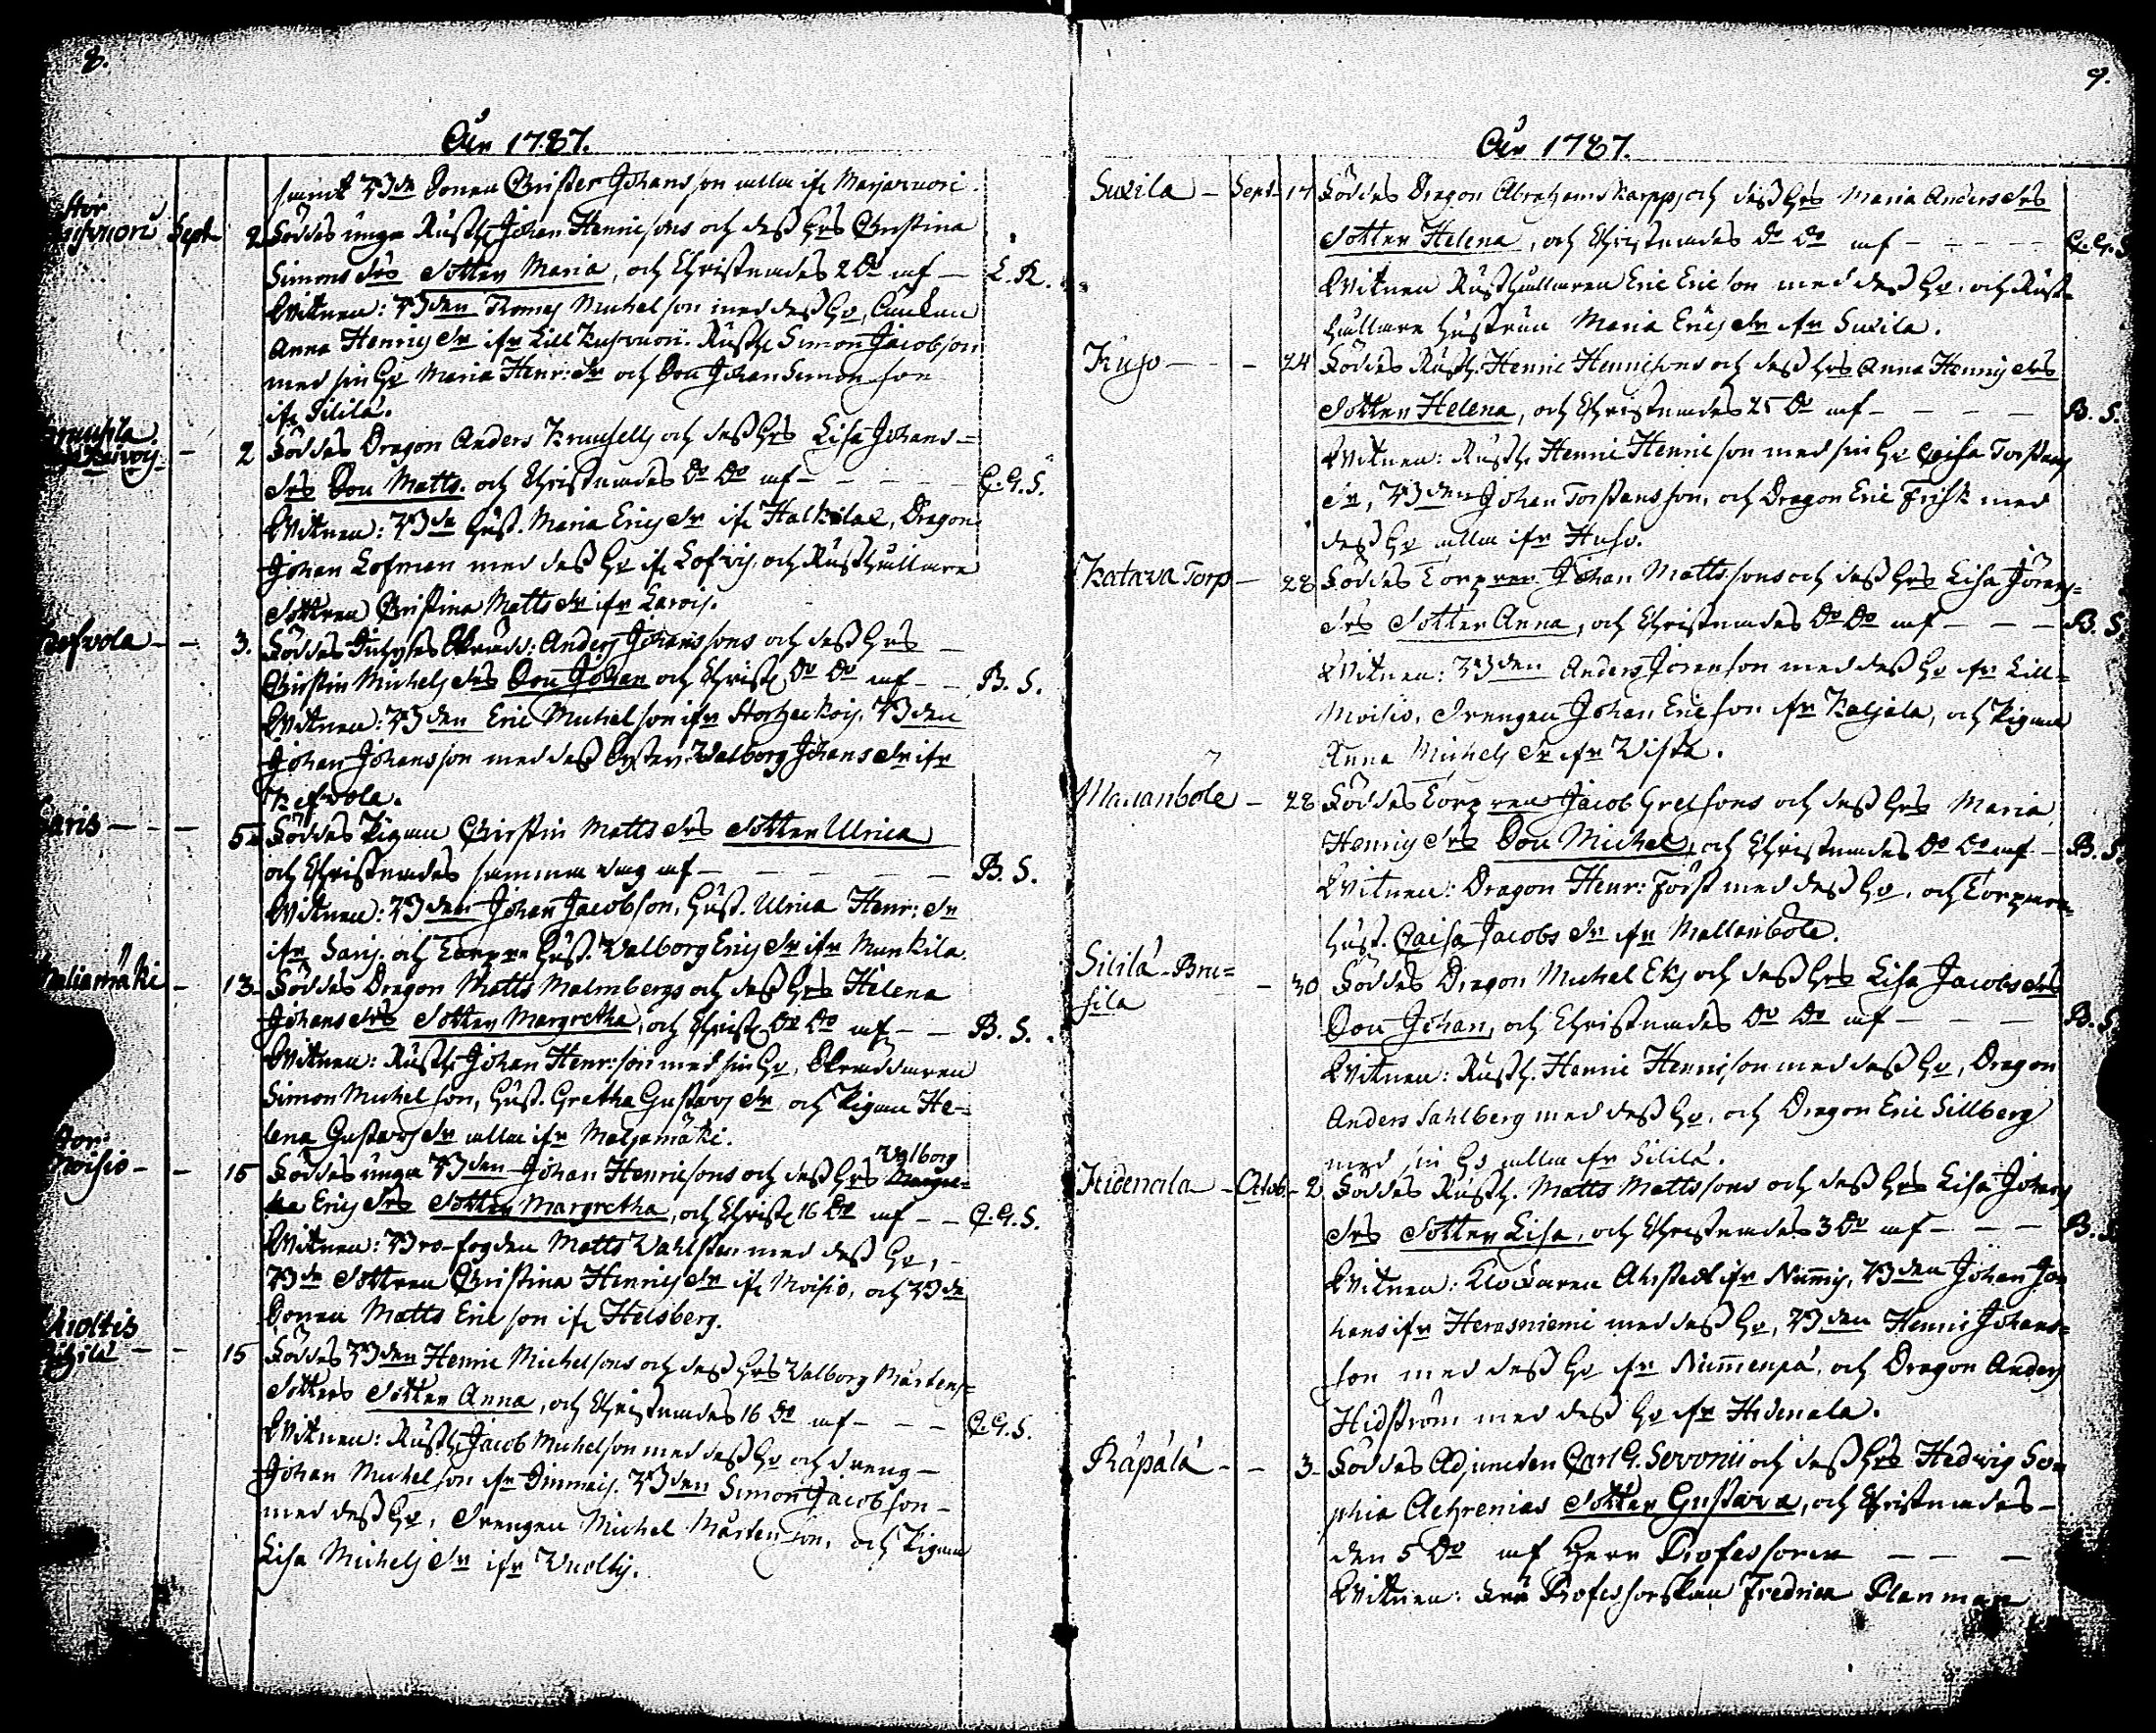 8.
År 1787.
samt Bde Sonen Christer Johansson alla ifr Marjavuori.
Stor
vuori Sept. 2 Föddes unga Rusth. Johan Henricsons och dess Hrs Christina
Simons drs dotter Maria, och Christnades 2 do af — L. R.
Witnen: Bden Thomas Michelson med dess Ho,
Anna Henrics dr ifr Lill Kusvuori. Rusth. Simon Jacobson
med sin Ho Maria Henr: dr och Son Johan Simonson
ifr Sililä.
2 Föddes Dragon Anders Krusells och dess Hrs Lisa Johans=
drs Son Matts. och Christnades do do af — — — C. G. S.
Witnen: Bde Hust. Maria Erics dr ifr Halkilax, Dragon
Johan Lofman med dess Ho ifr Lofvis, och Rusthållare
dottren Christina Matts dr ifr Karvis.
— — 3. Föddes Inhyses Skradd: Anders Johanssons och dess Hrs —
Christin Michels drs Son Johan och Christ. do do af — — B. S.
Witnen: Bden Eric Michelson ifr Bden
Johan Johansson med dess Syster Walborg Johans dr ifr
Kefvola.
Saris — — — 5. Föddes Pigan Christin Matts drs dotter Ulrica
och Christnades samma dag af — — — — B. S.
Witnen: Bden Johan Jacobson, Hust. Ulrica Henr: dr
ifr Saris. och Torpre Hust. Walborg Erics dr ifr Munkila.
Maliamäki — 13. Föddes Dragon Matts Malmbergs och dess Hrs Helena
Johans drs dotter Margretha, och Christ. do do af — — B. S.
Witnen: Rusth. Johan Henr: son med sin Ho, Skräddaren
Simon Michelson, Hust. Gretha Gustavs dr och Pigan He-
lena Gustavs dr alla ifr Maljamäki.
Stor
Moisio — — 15 Föddes unga Bden Johan Henricsons och dess Hrs Walborg
Erics drs dotter Margretha, och Christ. 16 do af — — C. G. S.
Witnen: Bro-fogden Matts Wahlsten med dess Ho, —
Bde dottren Christina Henrics dr ifr Moisio, och Bde
Sonen Matts Ericson ifr Helsberg.
— — 15 Föddes Bden Henric Michelsons och dess Hrs Valborg Mårtens=
dotters dotter Anna, och Christnades 16 do af — — — C. G. S.
Witnen: Rusth. Jacob Michelson med dess Ho och dreng —
Johan Michelson ifr Immais. Bden Simon Jacobson —
med dess Ho, drengen Michel Mårtenson, och Pigan
Lisa Michels dr ifr Vuoltis.
9.
År 1787.
Suxila — Sept. 17 Föddes Dragon Abrahams Karpps och dess Hrs Maria Anders drs
dotter Helena, och Christnades do do af — — — — C. G. S.
Witnen Rusthållaren Eric Ericson med dess Ho, och Rust=
hållare Hustrun Maria Erics dr ifr Suxila.
Huso — — — 24 Föddes Rusth. Henric Henricsons och dess Hrs Anna Henrics drs
dotter Helena, och Christnades 25 do af — — — — B. S.
Witnen: Rusth. Henric Henricson med sin Ho Caisa Torstens
dr, Bden Johan Torstensson, och Dragon Eric Frisk med
dess Ho alla ifr Huso.
Katava Torp — 28 Föddes Torpren Johan Mattssons och dess Hrs Lisa Jörans=
drs dotter Anna, och Christnades do do af — — — B. S.
Witnen: Bden Anders Jöranson med dess Ho ifr Lill=
Moisio, drengen Johan Ericson ifr Kaljala, och Pigan
Anna Michels dr ifr Vista.
— 28 Föddes Torpren Jacob Grelsons och dess Hrs Maria
Henrics drs Son Michel, och Christnades do do af — B. S.
Witnen: Dragon Henr: Först med dess Ho, och Torpare
Hust. Caisa Jacobs dr ifr Mallanböle.
Sililä-Bru=
sila — 30 Föddes Dragon Michel Eks och dess Hrs Lisa Jacobs drs
Son Johan, och Christnades do do af — — — B. S.
Witnen: Rusth. Henric Henricson med dess Ho, Dragon
Anders Sahlberg med dess Ho, och Dragon Eric Sillberg
med sin Ho alla ifr Sililä.
Hidencila — Octob. — 2 Föddes Rusth. Matts Mattssons och dess Hrs Lisa Johans
drs dotter Lisa, och Christnades 3 do af — — — B. S.
Witnen: Klockaren Ahlstedt ifr Nummis, Bden Johan Jo=
hans ifr Herasniemi med dess Ho, Bden Henric Johans=
son med dess Ho ifr Nummenpä, och Dragon Anders
Hidström med dess Ho ifr Hidenala.
Räpälä — — 3. Föddes Adjuncten Carl G. Sevonii och dess Hrs Hedwig So=
phia Aehrenias dotter Gustava, och Christnades —
den 5 do af Herr Professoren — — —
Witnen: Fru Professorskan Fredrica Planman